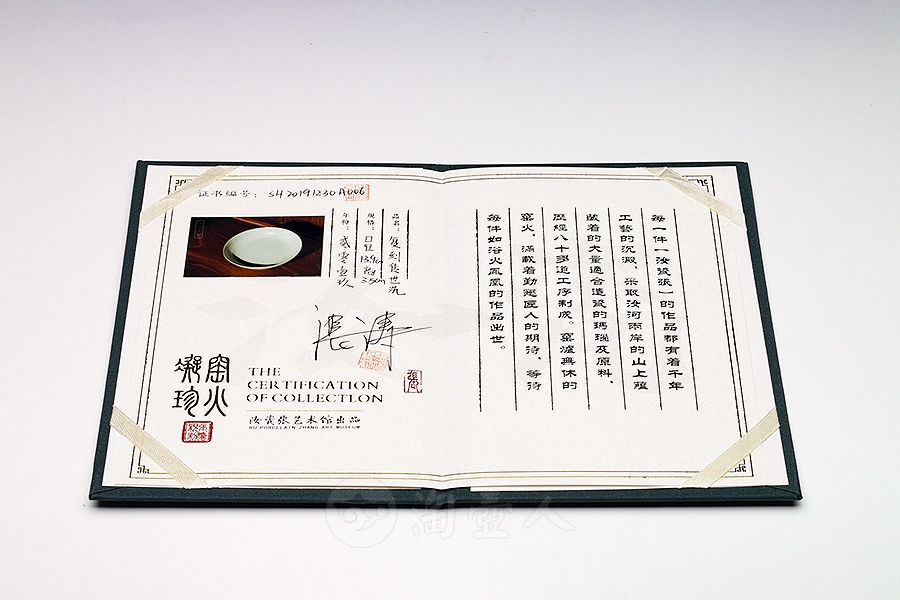 证书编号：SH20191230A006
品名：复刻传世洗
规格：口径13.9cm 高3.5cm
年份：贰零壹玖
张涛
窑火
凝珍
THE
CERTIFICATION
OF COLLECTLON
汝瓷张艺术馆出品
RU PORCELAIN ZHANG ART MUSEUM
每一件一汝瓷張）的作品都有着千年
工藝的沉澱，采取汝河兩岸的山上蘊
藏着的大量適合造瓷的瑪瑙及原料，
歷經八十多道工序制成。窑爐無休的
窑火，滿載着勤勉匠人的期待，等待
每件如浴火鳳凰的作品出世。
淘壶人